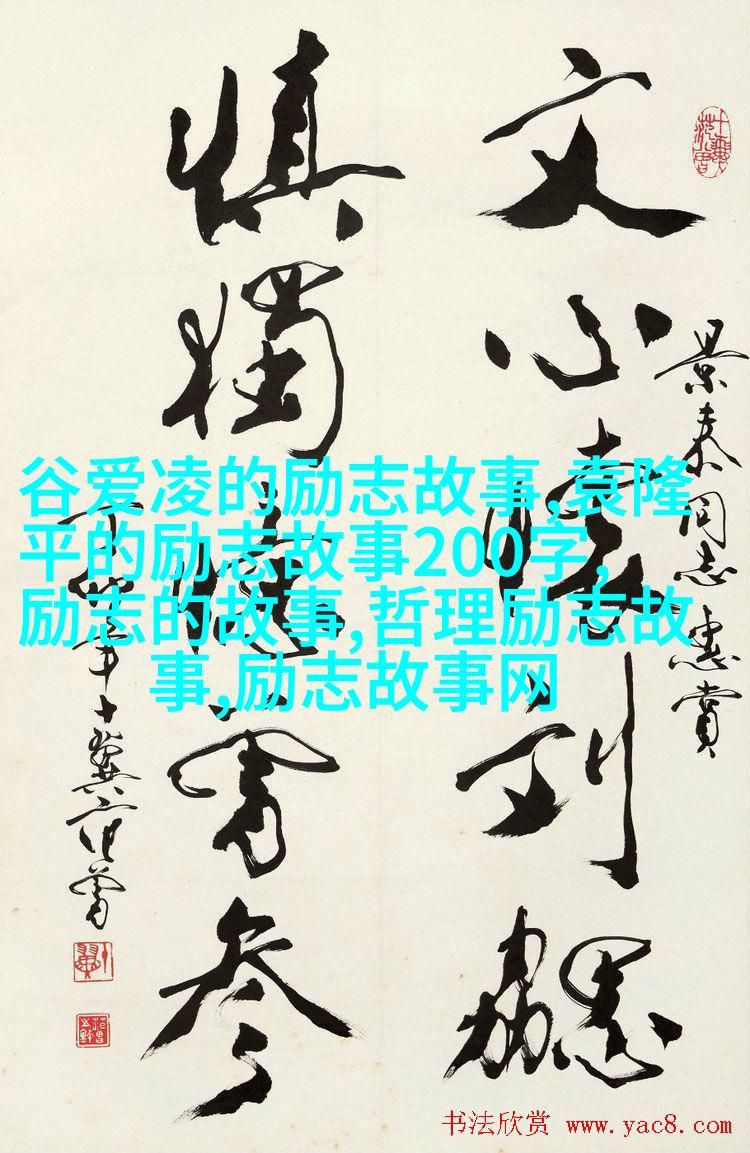 景泰同志惠賞
文心懷刘勰
慎獨曾参
年十翼范曾
谷爱凌的励志故事,袁隆
平的励志故事200字,
励志的故事,哲理励志故
事,励志故事网
书法欣赏 www.yac8.com